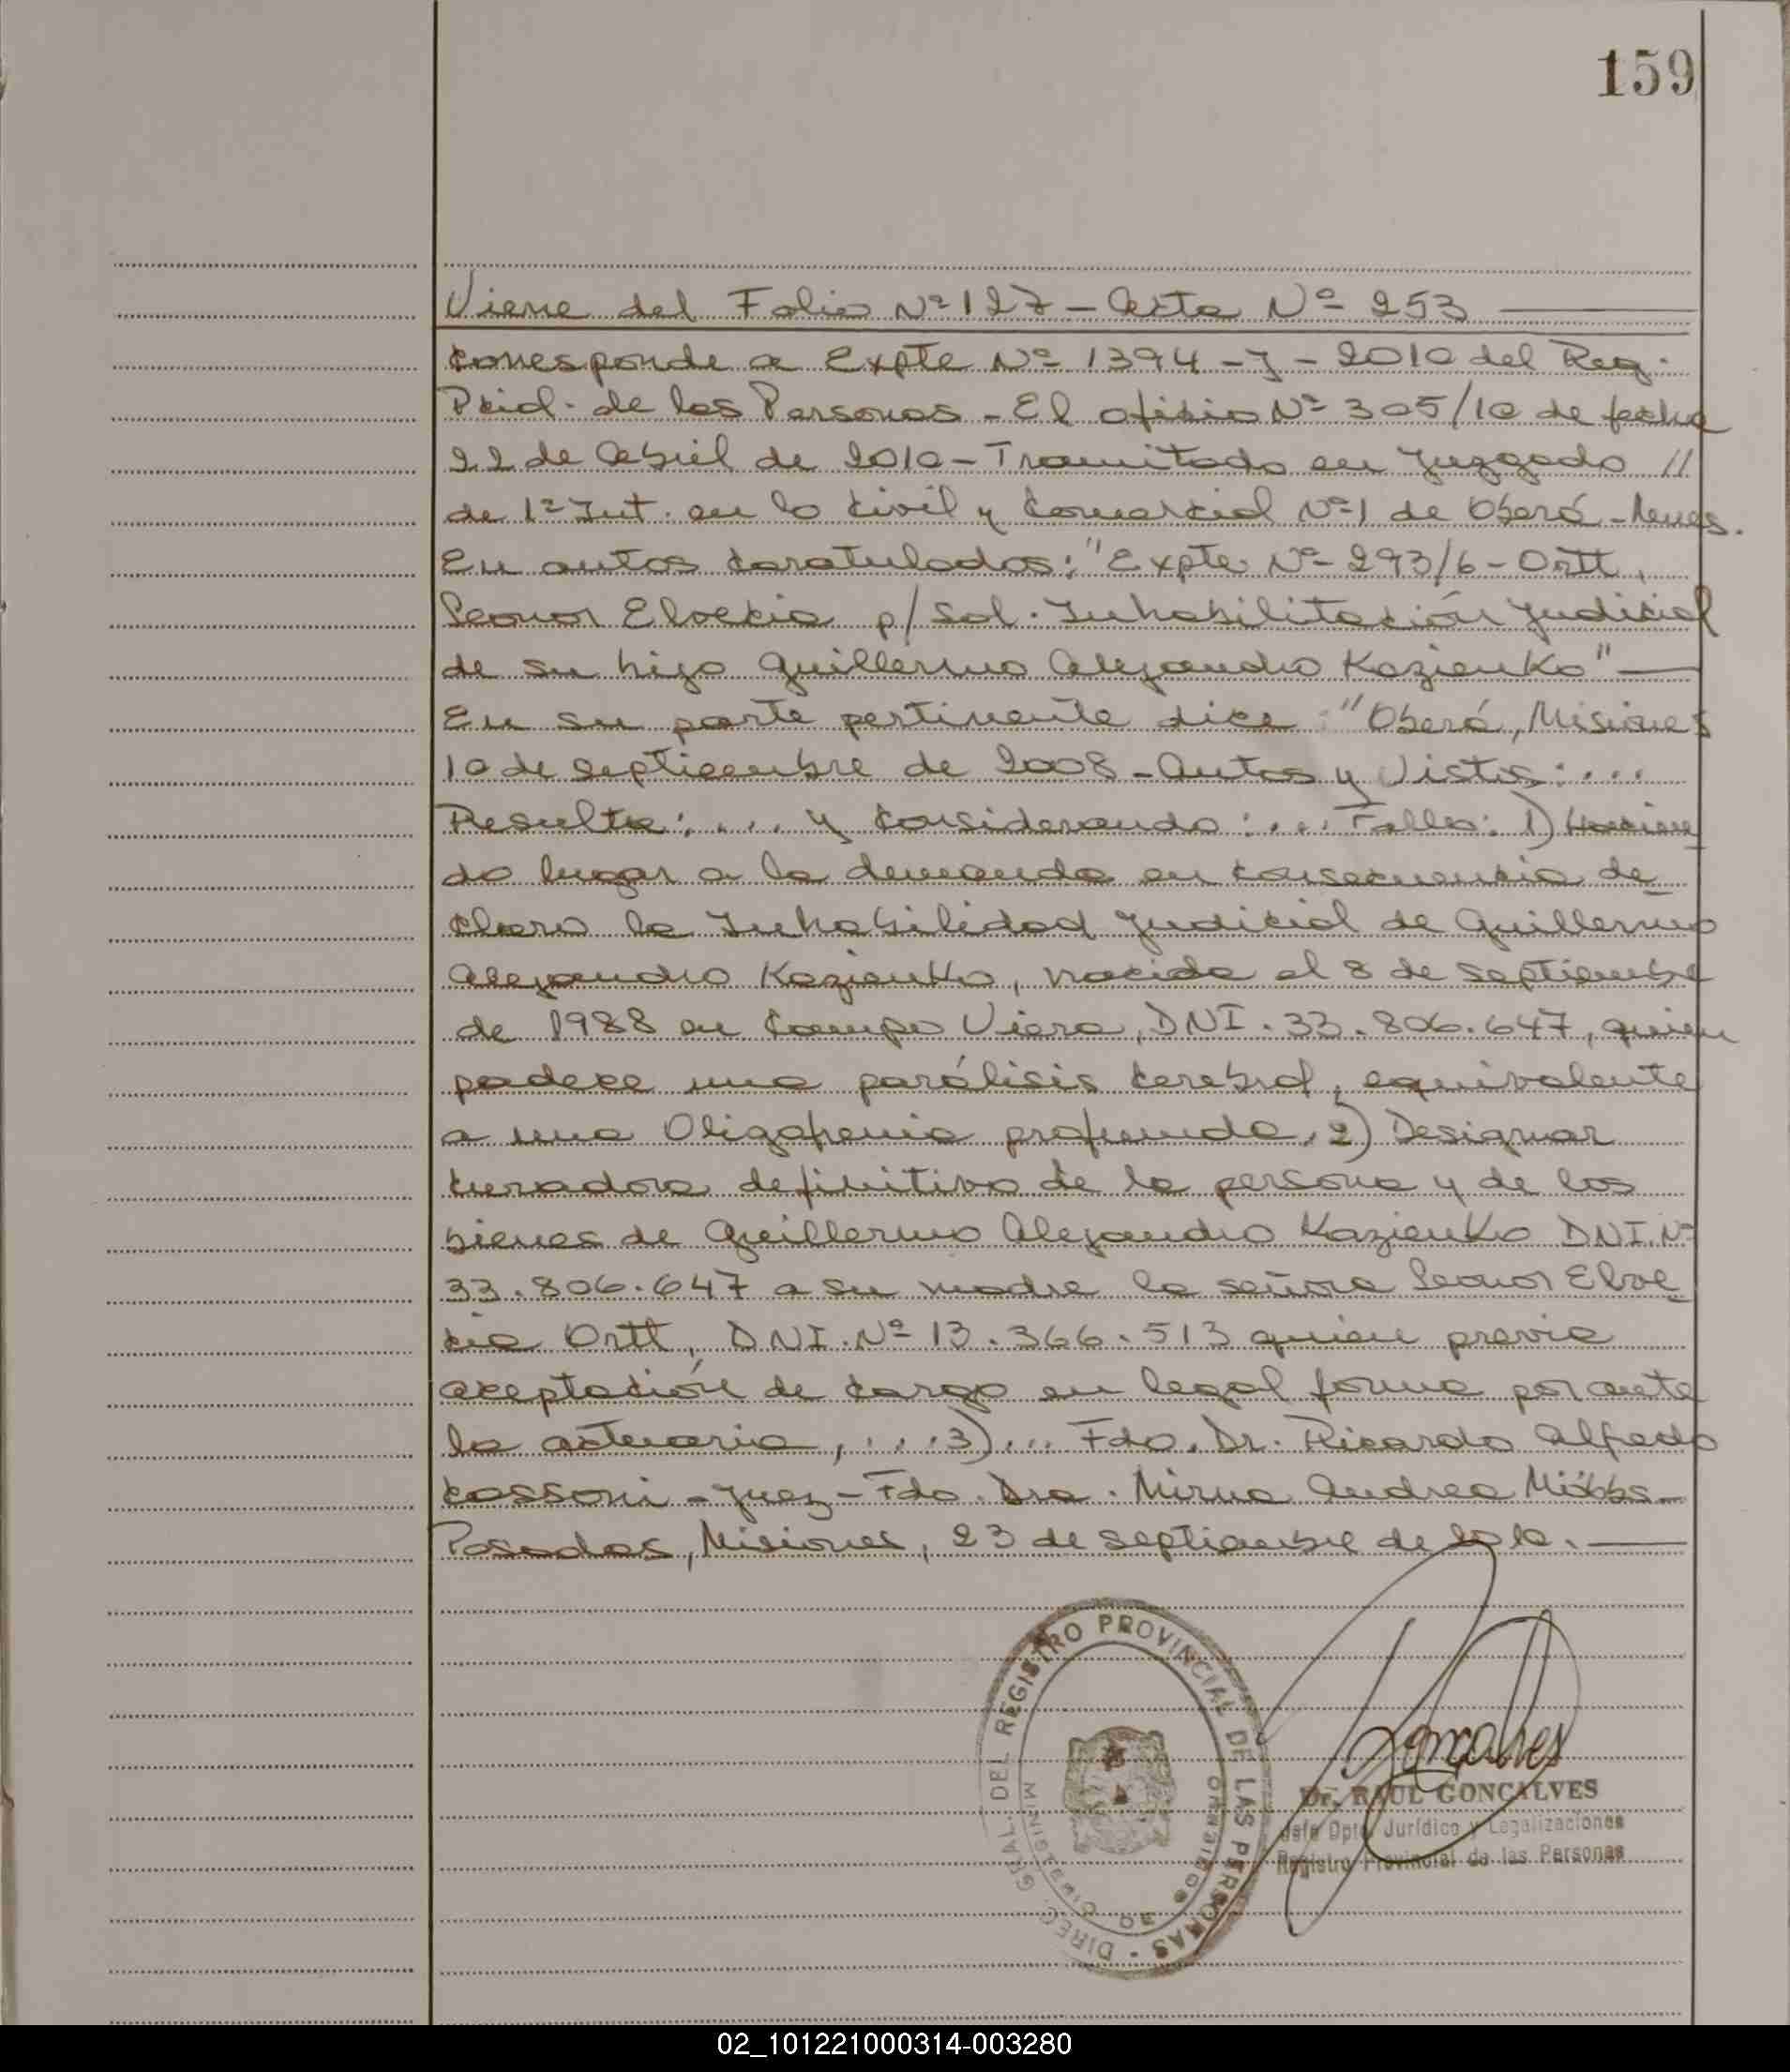 159
Viene del Folio Nº 127 - Acta Nº 253
Corresponde a Expte Nº 1394 - J - 2010 del Reg.
Pcial. de las Personas - El oficio Nº 305/10 de fecha
22 de Abril de 2010 - Tramitado en Juzgado //
de 1º Inst. en lo Civil y Comercial Nº 1 de Oberá - Mnes.
En autos caratulados: "Expte Nº 293/6 - Ortt,
Leonor Elvecia p/ Sol. Inhabilitación Judicial
de su hijo Guillermo Alejandro Kozienko"
En su parte pertinente dice: "Oberá, Misiones
10 de septiembre de 2008 - Autos y Vistos: ...
Resulta: .... y Considerando: ... Fallo: 1) Hacien
do lugar a la demanda en consecuencia de
claro la Inhabilidad Judicial de Guillermo
Alejandro Kozienko, nacido el 8 de septiembre
de 1988 en Campo Viera, DNI. 33.806.647, quien
padece una parálisis cerebral, equivalente
a una Oligofrenia profunda, 2) Designar
curadora definitiva de la persona y de los
bienes de Guillermo Alejandro Kozienko DNI. Nº
33.806.647 a su madre la señora Leonor Elve
cia Ortt, DNI. Nº 13.366.513 quien previa
aceptación de cargo en legal forma por ante
la actuaria, ... 3) ... Fdo. Dr. Ricardo Alfredo
Cassoni - Juez - Fdo. Dra. Mirna Andrea
Posadas, Misiones, 23 de septiembre de 2010.
DIREC. GRAL. DEL REGISTRO PROVINCIAL DE LAS PERSONAS
MISIONES
Goncalves
Dr. RAUL GONCALVES
Jefe Dpto. Jurídico y Legalizaciones
Registro Provincial de las Personas
02_101221000314-003280